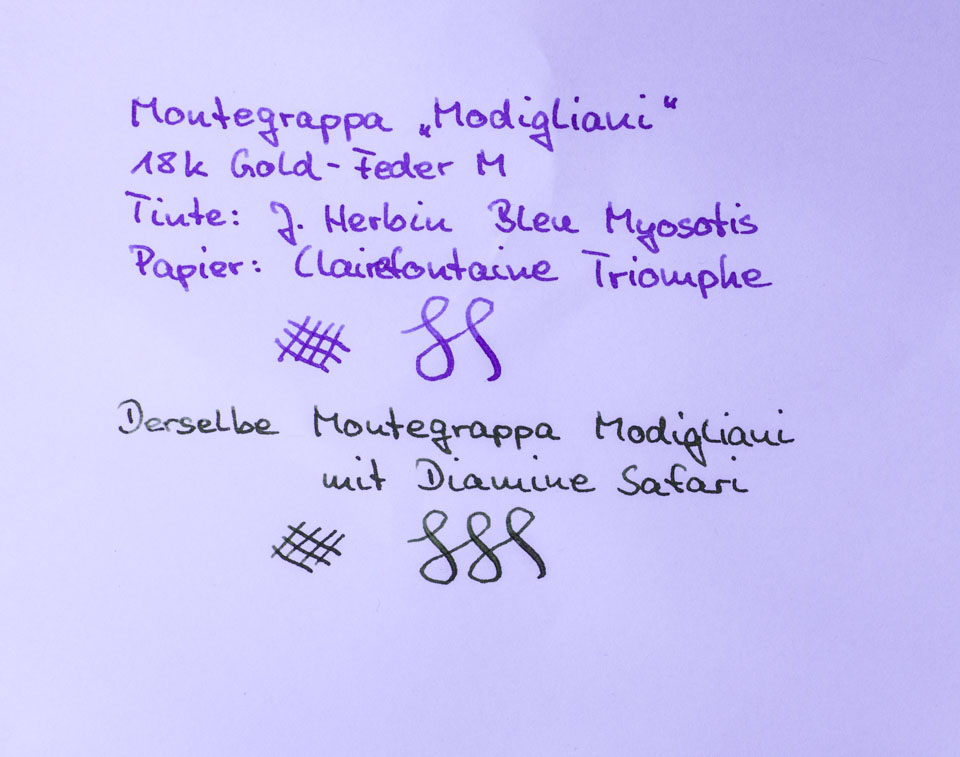 Montegrappa „Modigliani“
18k Gold-Feder M
Tinte: J. Herbin Bleu Myosotis
Papier: Clairefontaine Triomphe
Derselbe Montegrappa Modigliani
mit Diamine Safari